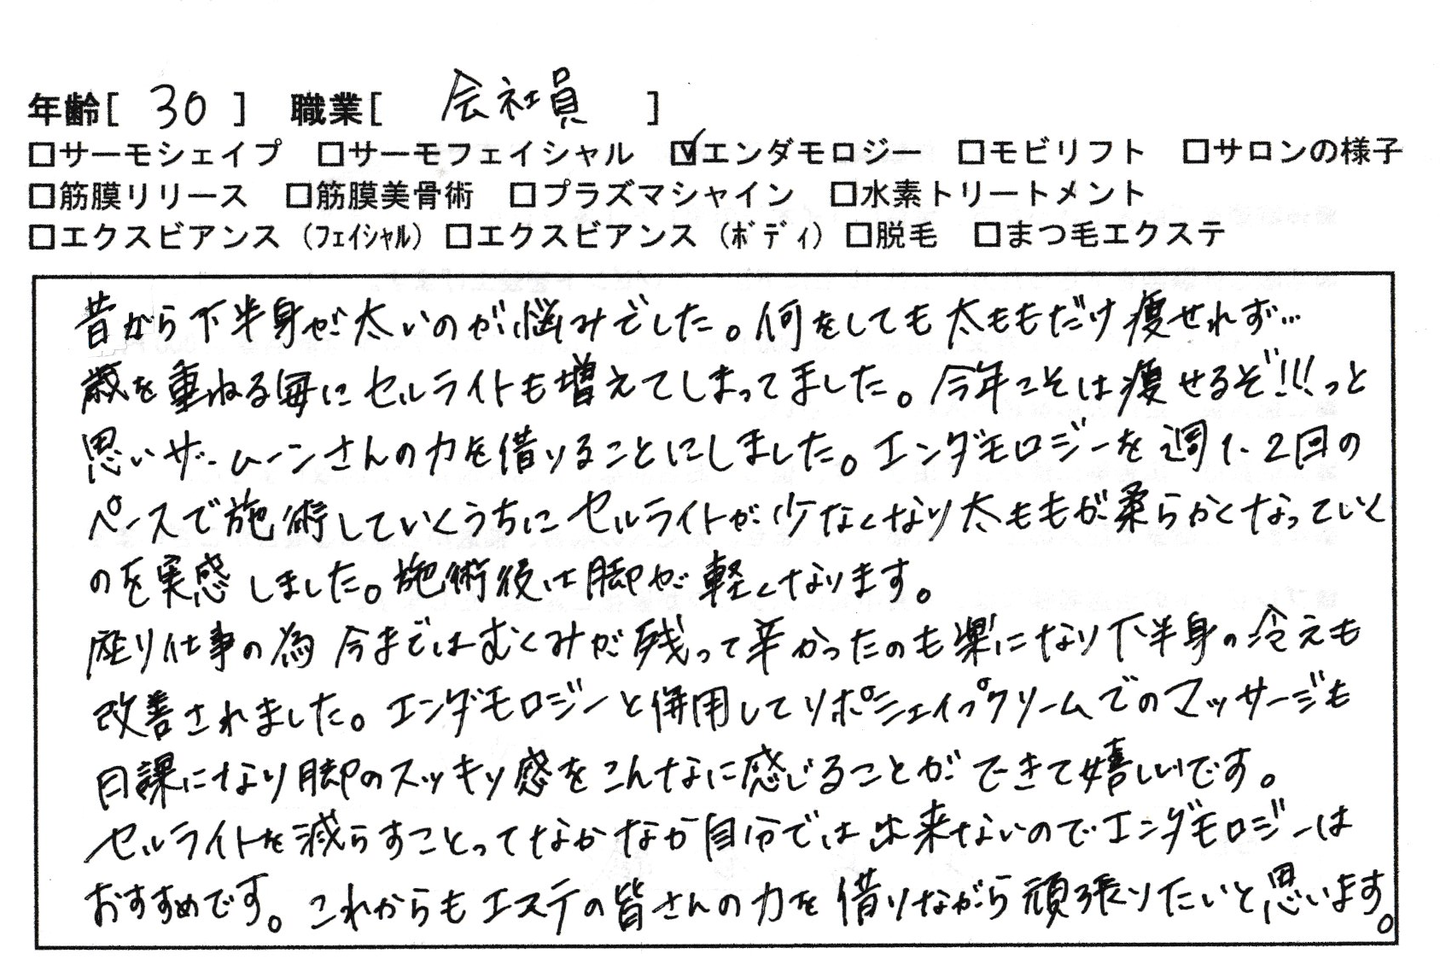 年齢[ 30 ] 職業[ 会社員 ]
□サーモシェイプ □サーモフェイシャル ☑エンダモロジー □モビリフト □サロンの様子
□筋膜リリース □筋膜美骨術 □プラズマシャイン □水素トリートメント
□エクスビアンス（フェイシャル） □エクスビアンス（ボディ） □脱毛 □まつ毛エクステ
昔から下半身が太いのが悩みでした。何をしても太ももだけ痩せれず…
歳を重ねる毎にセルライトも増えてしまってました。今年こそは痩せるぞ!!!っと
思いザ・ムーンさんの力を借りることにしました。エンダモロジーを週1、2回の
ペースで施術していくうちにセルライトが少なくなり太ももが柔らかくなっていく
のを実感しました。施術後は脚が軽くなります。
座り仕事の為今まではむくみが残って辛かったのも楽になり下半身の冷えも
改善されました。エンダモロジーと併用してリポシェイプクリームでのマッサージも
日課になり脚のスッキリ感をこんなに感じることができて嬉しいです。
セルライトを減らすことってなかなか自分では出来ないのでエンダモロジーは
おすすめです。これからもエステの皆さんの力を借りながら頑張りたいと思います。